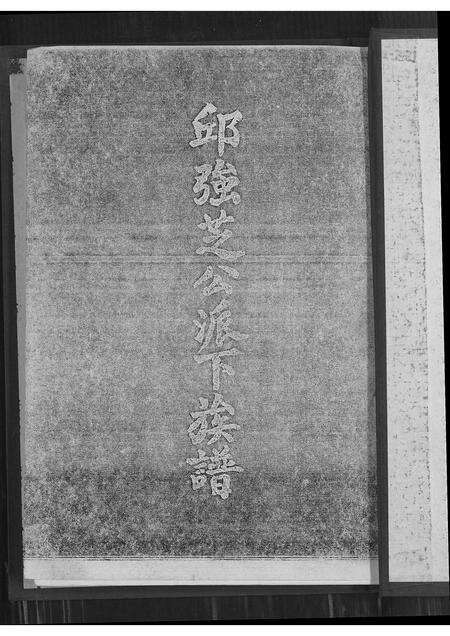 邱強芝公派下族譜